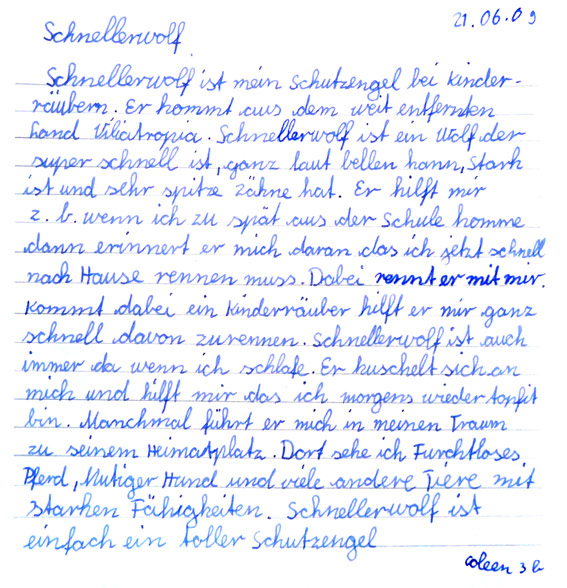 21.06.09
Schnellerwolf
Schnellerwolf ist mein Schutzengel bei Kinder-
räubern. Er kommt aus dem weit entfernten
Land Viliatropia. Schnellerwolf ist ein Wolf der
super schnell ist, ganz laut bellen kann, Stark
ist und sehr spitze Zähne hat. Er hilft mir
z. b. wenn ich zu spät aus der Schule komme
dann erinnert er mich daran das ich jetzt schnell
nach Hause rennen muss. Dabei rennt er mit mir.
Kommt dabei ein Kinderräuber hilft er mir ganz
schnell davon zurennen. Schnellerwolf ist auch
immer da wenn ich schlafe. Er kuschelt sich an
mich und hilft mir das ich morgens wieder topfit
bin. Manchmal führt er mich in meinen Traum
zu seinem Heimatplatz. Dort sehe ich Furchtloses
Pferd, Mutiger Hund und viele andere Tiere mit
starken Fähigkeiten. Schnellerwolf ist
einfach ein toller Schutzengel
Coleen 3b